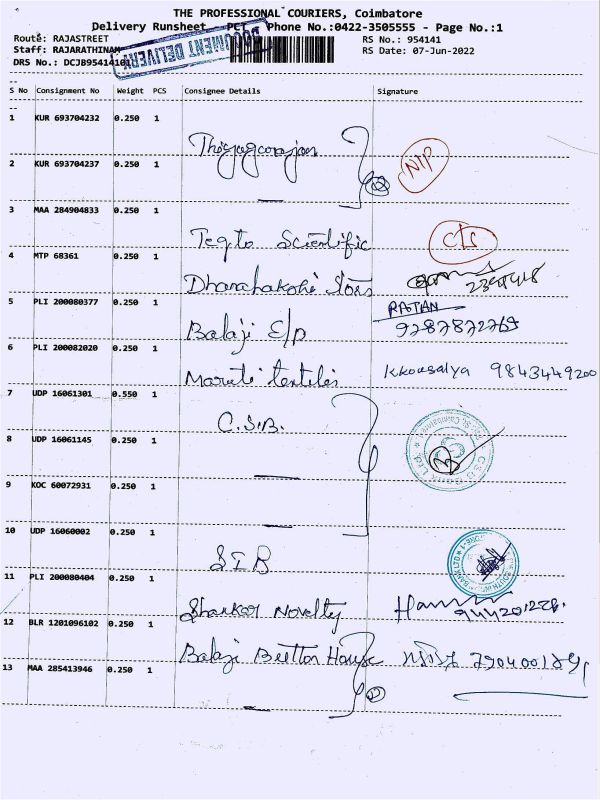 THE PROFESSIONAL COURIERS, Coimbatore
Delivery Runsheet - PLI Phone No.:0422-3505555 - Page No.:1
Route: RAJASTREET RS No.: 954141
Staff: RAJARATHINAM RS Date: 07-Jun-2022
DRS No.: DCJB95414101
DOCUMENT DELIVERY
S No Consignment No Weight PCS Consignee Details Signature
1 KUR 693704232 0.250 1 Thiyagarajan
2 KUR 693704237 0.250 1 — NIP
3 MAA 284904833 0.250 1 Teqto Scientific C/S
4 MTP 68361 0.250 1 Dharahakshi Stors
5 PLI 200080377 0.250 1 Balaji E/P RATAN 9787872769
6 PLI 200082020 0.250 1 Maruti textiles K.Kousalya 9843449200
7 UDP 16061301 0.550 1 C.S.B.
8 UDP 16061145 0.250 1 —
9 KOC 60072931 0.250 1 —
10 UDP 16060002 0.250 1 S I B
11 PLI 200080404 0.250 1 Shankar Novelty
12 BLR 1201096102 0.250 1 Balaji Button House
13 MAA 285413946 0.250 1 —